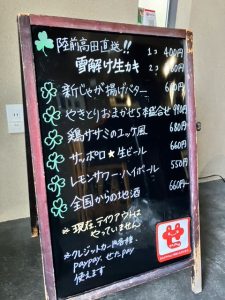 陸前高田直送!! 1コ 400円
雪解け生カキ 2コ
新じゃが揚げバター
やきとりおまかせ5本盛合せ 980円
鶏ササミのユッケ風 680円
サッポロ★生ビール 660円
レモンサワー・ハイボール 550円
全国からの地酒 660円〜
※現在、テイクアウトは
やっていません
※クレジットカード各種、
paypay、せたpay
使えます